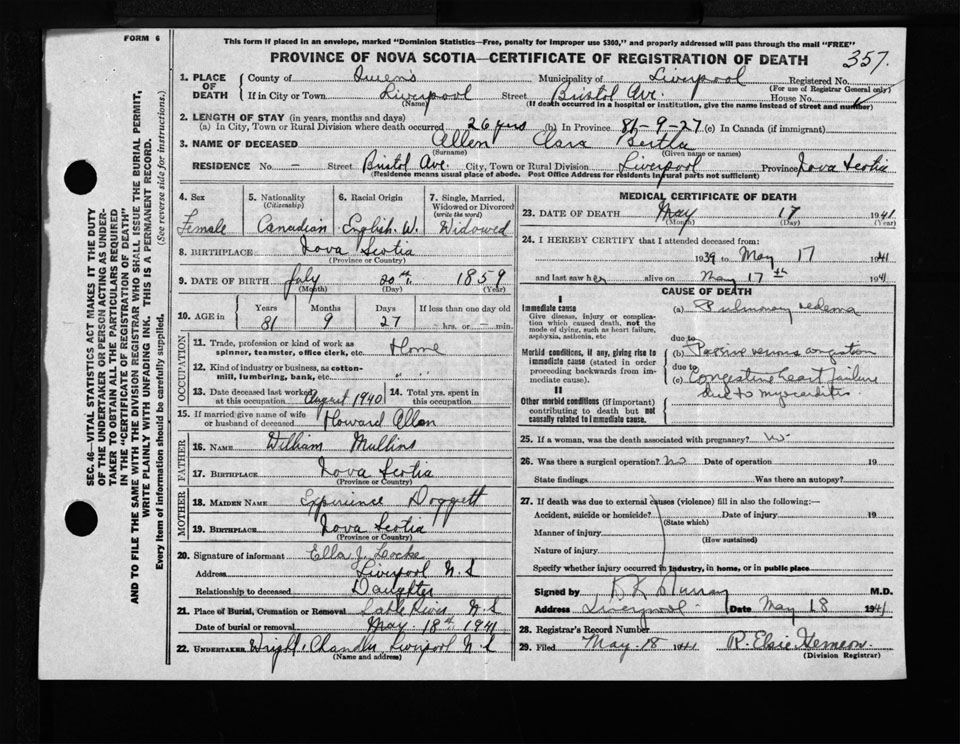 FORM 6
This form if placed in an envelope, marked "Dominion Statistics—Free, penalty for improper use $300," and properly addressed will pass through the mail "FREE"
PROVINCE OF NOVA SCOTIA—CERTIFICATE OF REGISTRATION OF DEATH
357.
1. PLACE OF DEATH
County of Queens Municipality of Liverpool Registered No.
(For use of Registrar General only)
If in City or Town Liverpool Street Bristol Ave. House No.
(Name) (If death occurred in a hospital or institution, give the name instead of street and number)
2. LENGTH OF STAY (in years, months and days)
(a) In City, Town or Rural Division where death occurred 26 yrs (b) In Province 81-9-27 (c) In Canada (if immigrant)
3. NAME OF DECEASED Allen Clara Bertha
(Surname) (Given name or names)
RESIDENCE No. — Street Bristol Ave. City, Town or Rural Division Liverpool Province Nova Scotia
(Residence means usual place of abode. Post Office Address for residents in rural parts not sufficient)
4. Sex
Female
5. Nationality
(Citizenship)
Canadian
6. Racial Origin
English. W.
7. Single, Married, Widowed or Divorced
(write the word)
Widowed
8. BIRTHPLACE Nova Scotia
(Province or Country)
9. DATE OF BIRTH July 20th 1859
(Month) (Day) (Year)
10. AGE in
Years Months Days If less than one day old
81 9 27 — hrs. or — min.
OCCUPATION
11. Trade, profession or kind of work as spinner, teamster, office clerk, etc. Home
12. Kind of industry or business, as cotton-mill, lumbering, bank, etc. " "
13. Date deceased last worked at this occupation August 1940
14. Total yrs. spent in this occupation
15. If married give name of wife or husband of deceased Howard Allen
FATHER
16. NAME William Mullins
17. BIRTHPLACE Nova Scotia
(Province or Country)
MOTHER
18. MAIDEN NAME Experience Doggett
19. BIRTHPLACE Nova Scotia
(Province or Country)
20. Signature of informant Ella J. Locke
Address Liverpool N.S
Relationship to deceased Daughter
21. Place of Burial, Cremation or Removal Sable River N.S
Date of burial or removal May 18th 1941
22. UNDERTAKER Wright, Chandler Liverpool N.S
(Name and address)
MEDICAL CERTIFICATE OF DEATH
23. DATE OF DEATH May 17 1941.
(Month) (Day) (Year)
24. I HEREBY CERTIFY that I attended deceased from:
1939 to May 17 1941
and last saw her alive on May 17th 1941
CAUSE OF DEATH
I
Immediate cause
Give disease, injury or complication which caused death, not the mode of dying, such as heart failure, asphyxia, asthenia, etc
(a) Pulmonary edema
due to
Morbid conditions, if any, giving rise to immediate cause (stated in order proceeding backwards from immediate cause).
(b) Passive venous congestion
due to
(c) Congestive heart failure
due to myocarditis.
II
Other morbid conditions (if important) contributing to death but not causally related to immediate cause.
25. If a woman, was the death associated with pregnancy?
26. Was there a surgical operation? No Date of operation 19
State findings Was there an autopsy?
27. If death was due to external causes (violence) fill in also the following:—
Accident, suicide or homicide? Date of injury 19
(State which)
Manner of injury
(How sustained)
Nature of injury
Specify whether injury occurred in industry, in home, or in public place
Signed by Murray M.D.
Address Liverpool Date May 18 1941
28. Registrar's Record Number
29. Filed May. 18 1941 R. Elsie Hemeon.
(Division Registrar)
SEC. 46—VITAL STATISTICS ACT MAKES IT THE DUTY
OF THE UNDERTAKER OR PERSON ACTING AS UNDER-
TAKER TO OBTAIN ALL THE PARTICULARS REQUIRED
IN THE "CERTIFICATE OF REGISTRATION OF DEATH"
AND TO FILE THE SAME WITH THE DIVISION REGISTRAR WHO SHALL ISSUE THE BURIAL PERMIT,
WRITE PLAINLY WITH UNFADING INK. THIS IS A PERMANENT RECORD.
Every item of information should be carefully supplied. (See reverse side for instructions.)